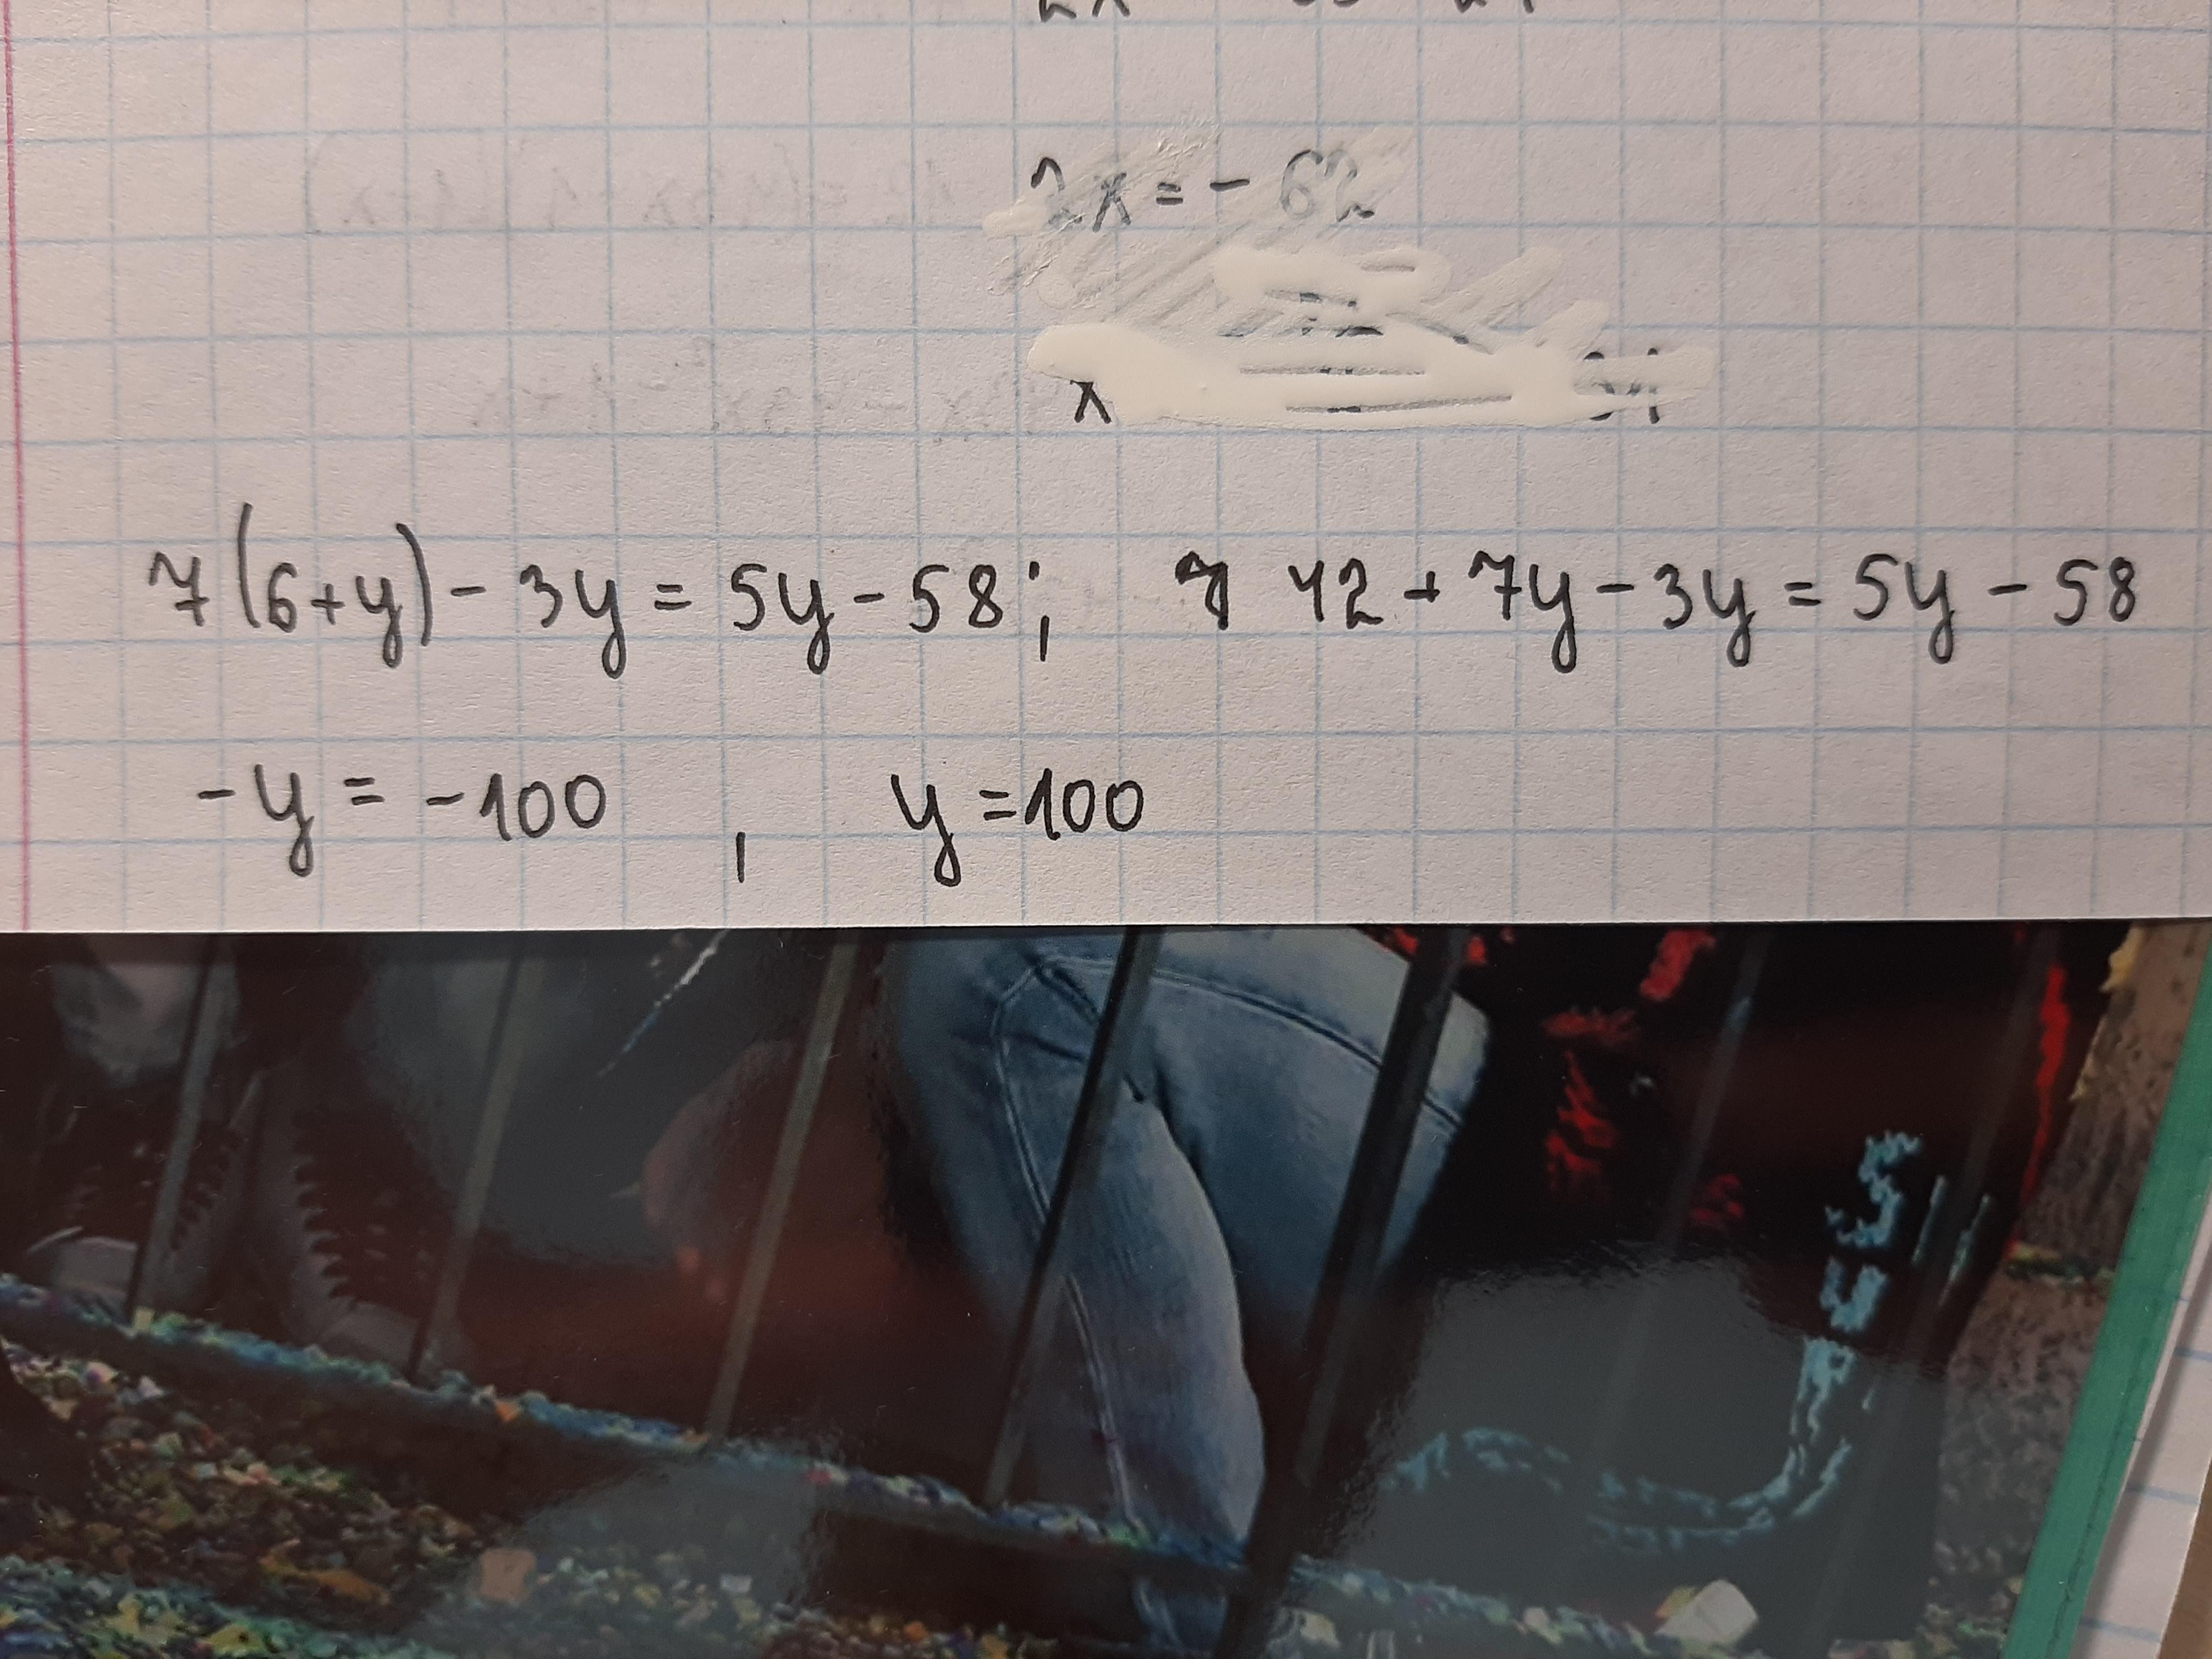 2x = - 62
x
7(6+y) - 3y = 5y - 58; 7 42 + 7y - 3y = 5y - 58
-y = -100 , y = 100